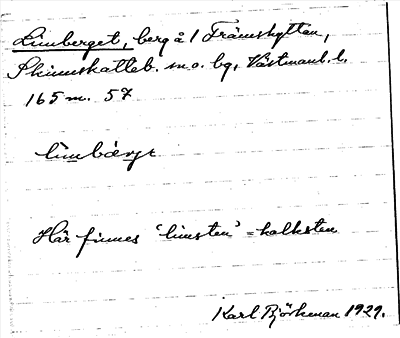 Limberget, berg å 1 Främshyttan,
Skinnskatteb. sn o. bg, Västmanl. l.
165 m. 57
limbærje
Här finnes 'limsten' = kalksten
Karl Björkman 1929.